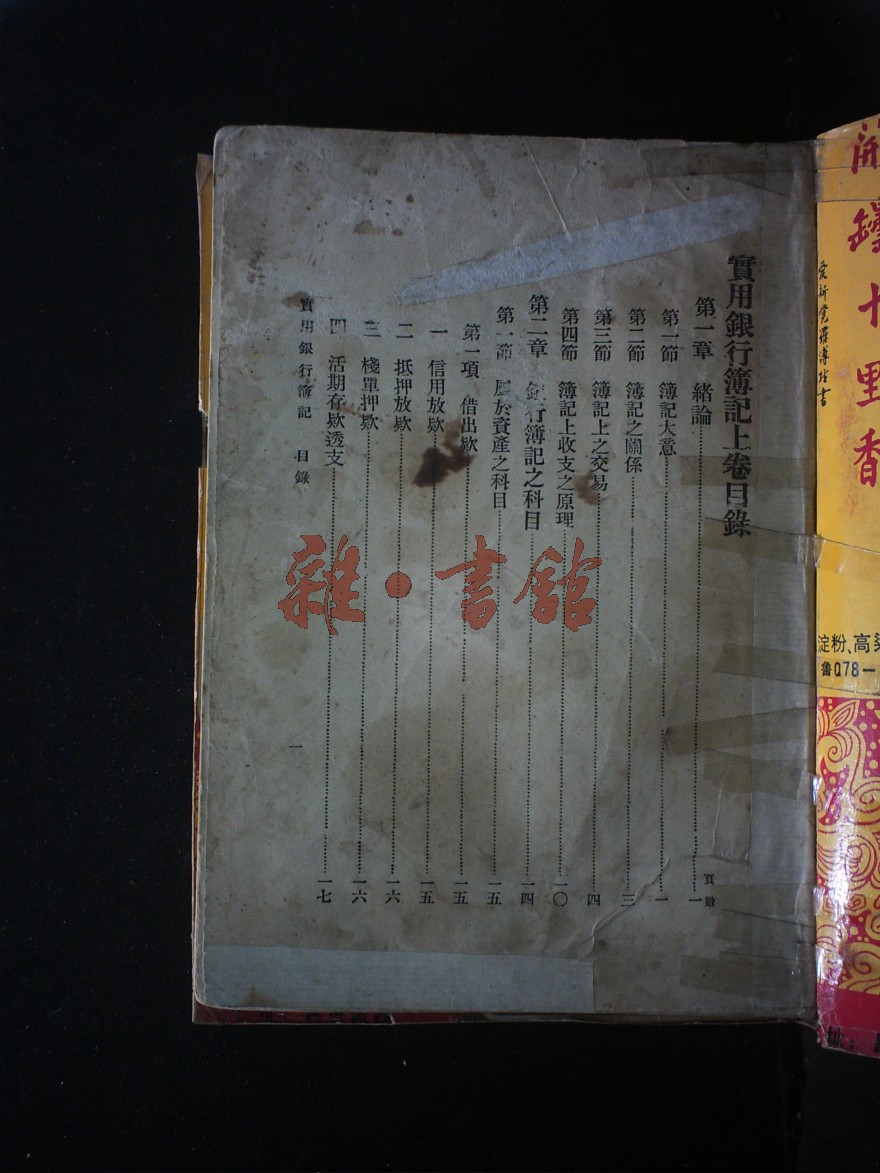 開罈十里香
愛新覺羅溥任書
淀粉、高粱
鲁Q78—
址：
實用銀行簿記上卷目錄
頁數
第一章 緒論 一
第一節 簿記大意 一
第二節 簿記之關係 三
第三節 簿記上之交易 四
第四節 簿記上收支之原理 一〇
第二章 銀行簿記之科目 一四
第一節 屬於資產之科目 一五
第一項 借出欵 一五
一 信用放欵 一五
二 抵押放欵 一六
三 棧單押欵 一六
四 活期存欵透支 一七
實用銀行簿記 目錄 一
雜·書館